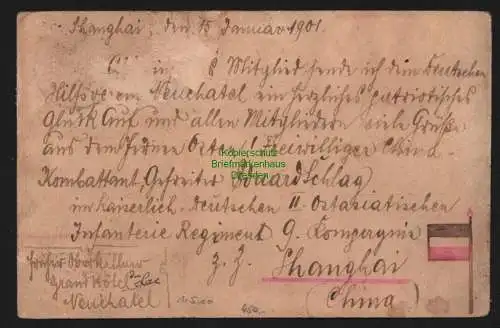 Shanghai, den 15 Januar 1901.
in Mitglied sende ich dem Deutschen
Hilfsverein Neuchatel ein herzliches patriotisches
Glück Auf und allen Mitgliedern viele Grüße
aus dem Fernen Osten! Freiwilliger China
(Kopierschutz
Briefmarkenhaus
Dresden)
Kombattant, Gefreiter Schlag
im Kaiserlich-Deutschen II Ostasiatischen
Infanterie Regiment 9. Kompagnie
z. Z. Shanghai
(China)
früher Oberkellner
Grand Hôtel
Neuchatel
450.-